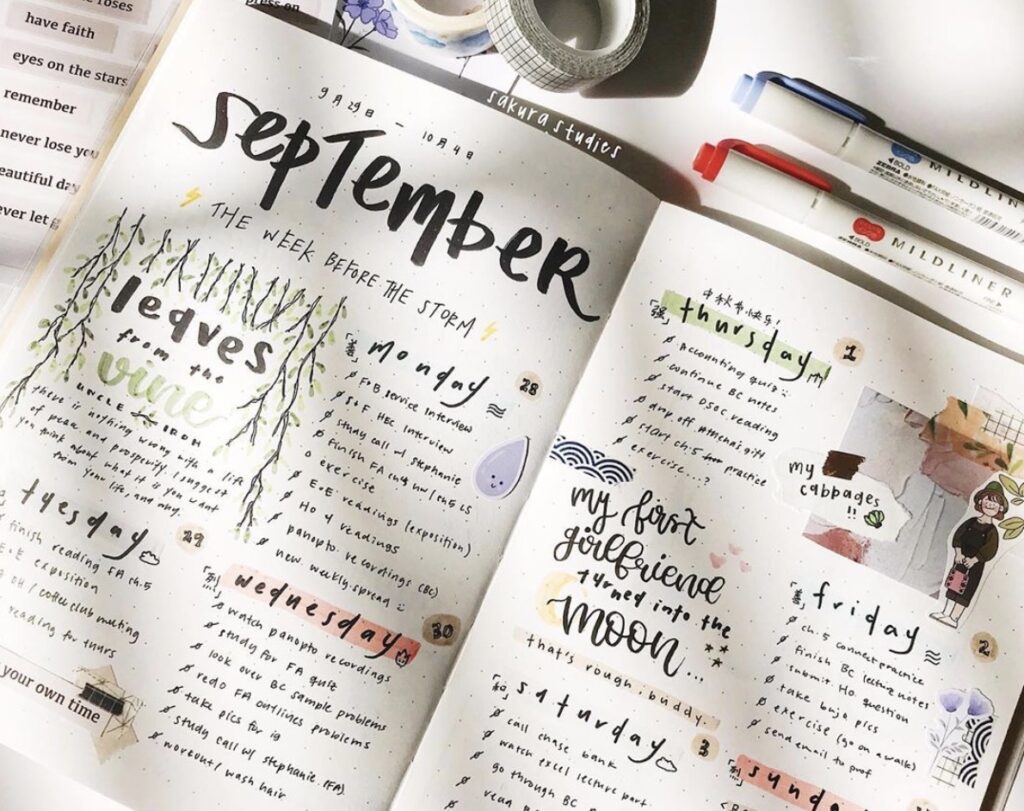 have faith
eyes on the stars
remember
never lose you
eautiful day
ever let g
sakura.studies
9月29日 — 10月4日
September
THE WEEK BEFORE THE STORM
leaves
from
the
vine
UNCLE IROH
there is nothing wrong with a life
of peace and prosperity. I suggest
you think about what it is you want
from your life, and why.
monday
28
F+B service interview
S+F HBC interview
study call w/ stephanie
finish FA ch4 hw/ch5 LS
exercise
E+E readings (exposition)
Ho 4 readings
panopto recordings (BC)
new weekly spread
tuesday
29
finish reading FA ch.5
E+E exposition
OH / coffee club meeting
reading for thurs
your own time
wednesday
30
watch panopto recordings
study for FA quiz
look over BC sample problems
redo FA outlines problems
take pics for ig
study call w/ stephanie (FA)
workout/wash hair
中秋节快乐!
「强」
thursday
1
Accounting quiz
continue BC notes
start DSOC reading
drop off Athena's gift
start ch.5 practice
exercise...?
my
cabbages
!!
my first
girlfriend
turned into the
moon...
that's rough, buddy.
friday
2
ch.5 connect practice
finish BC lecture notes
submit Ho. question
take buja pics
exercise (go on a walk)
send email to prof
saturday
3
call chase bank
watch excel lecture part
go through BC
read
sunda
BOLD
ZEBRA
MILDLIN
BOLD
ZEBRA
MILDLINER